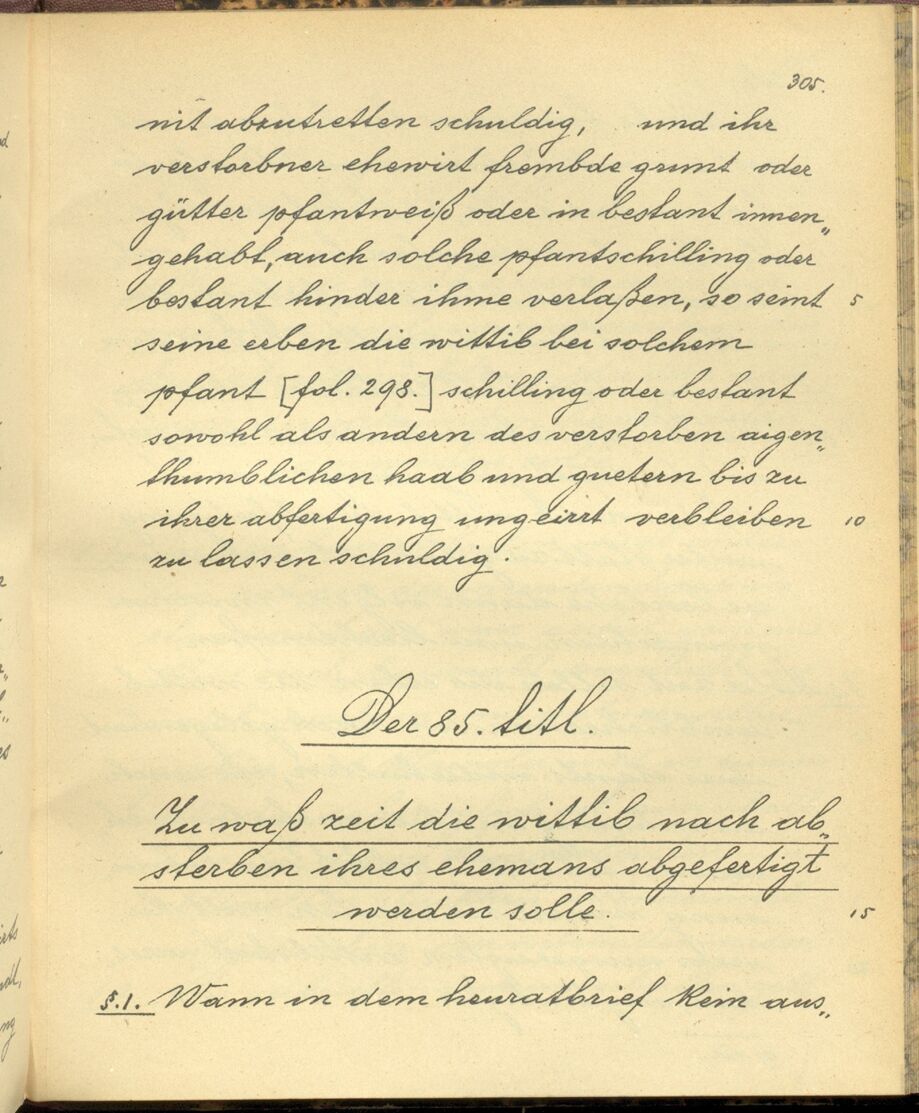 305.
nit abzutretten schuldig, und ihr
verstorbner ehewirt frembde grunt oder
gütter pfantweiß oder in bestant innen„
gehabt, auch solche pfantschilling oder
bestant hinder ihme verlaßen, so seint 5
seine erben die wittib bei solchem
pfant [fol. 298.] schilling oder bestant
sowohl als andern des verstorben aigen„
thumblichen haab und guetern bis zu
ihrer abfertigung ungeirrt verbleiben 10
zu lassen schuldig.
Der 85. titl.
Zu waß zeit die wittib nach ab„
sterben ihres ehemans abgefertigt
werden solle. 15
§.1. Wann in dem heuratbrief kein aus„